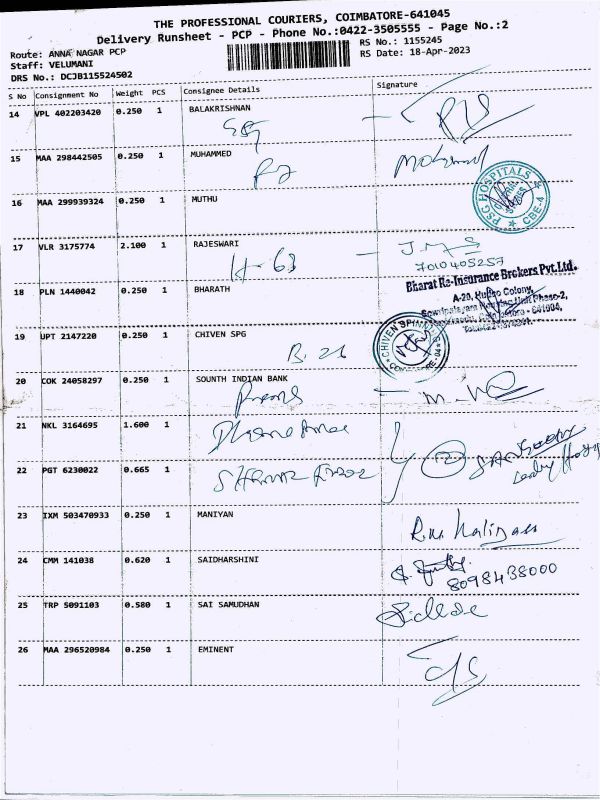 THE PROFESSIONAL COURIERS, COIMBATORE-641045
Delivery Runsheet - PCP - Phone No.:0422-3505555 - Page No.:2
Route: ANNA NAGAR PCP
Staff: VELUMANI
DRS No.: DCJB115524502
RS No.: 1155245
RS Date: 18-Apr-2023
S No Consignment No Weight PCS Consignee Details Signature
14 VPL 402203420 0.250 1 BALAKRISHNAN
15 MAA 298442505 0.250 1 MUHAMMED
16 MAA 299939324 0.250 1 MUTHU
KSG HOSPITALS
CBE-4
17 VLR 3175774 2.100 1 RAJESWARI
H-63
7010405257
Bharat Re-Insurance Brokers Pvt.Ltd.
18 PLN 1440042 0.250 1 BHARATH
A-20, Colony,
Phase-2,
641004,
19 UPT 2147220 0.250 1 CHIVEN SPG
CHIVEN
B. 26
20 COK 24058297 0.250 1 SOUNTH INDIAN BANK
21 NKL 3164695 1.600 1
22 PGT 6230022 0.665 1
23 IXM 503470933 0.250 1 MANIYAN
24 CMM 141038 0.620 1 SAIDHARSHINI
8098438000
25 TRP 5091103 0.580 1 SAI SAMUDHAN
26 MAA 296520984 0.250 1 EMINENT